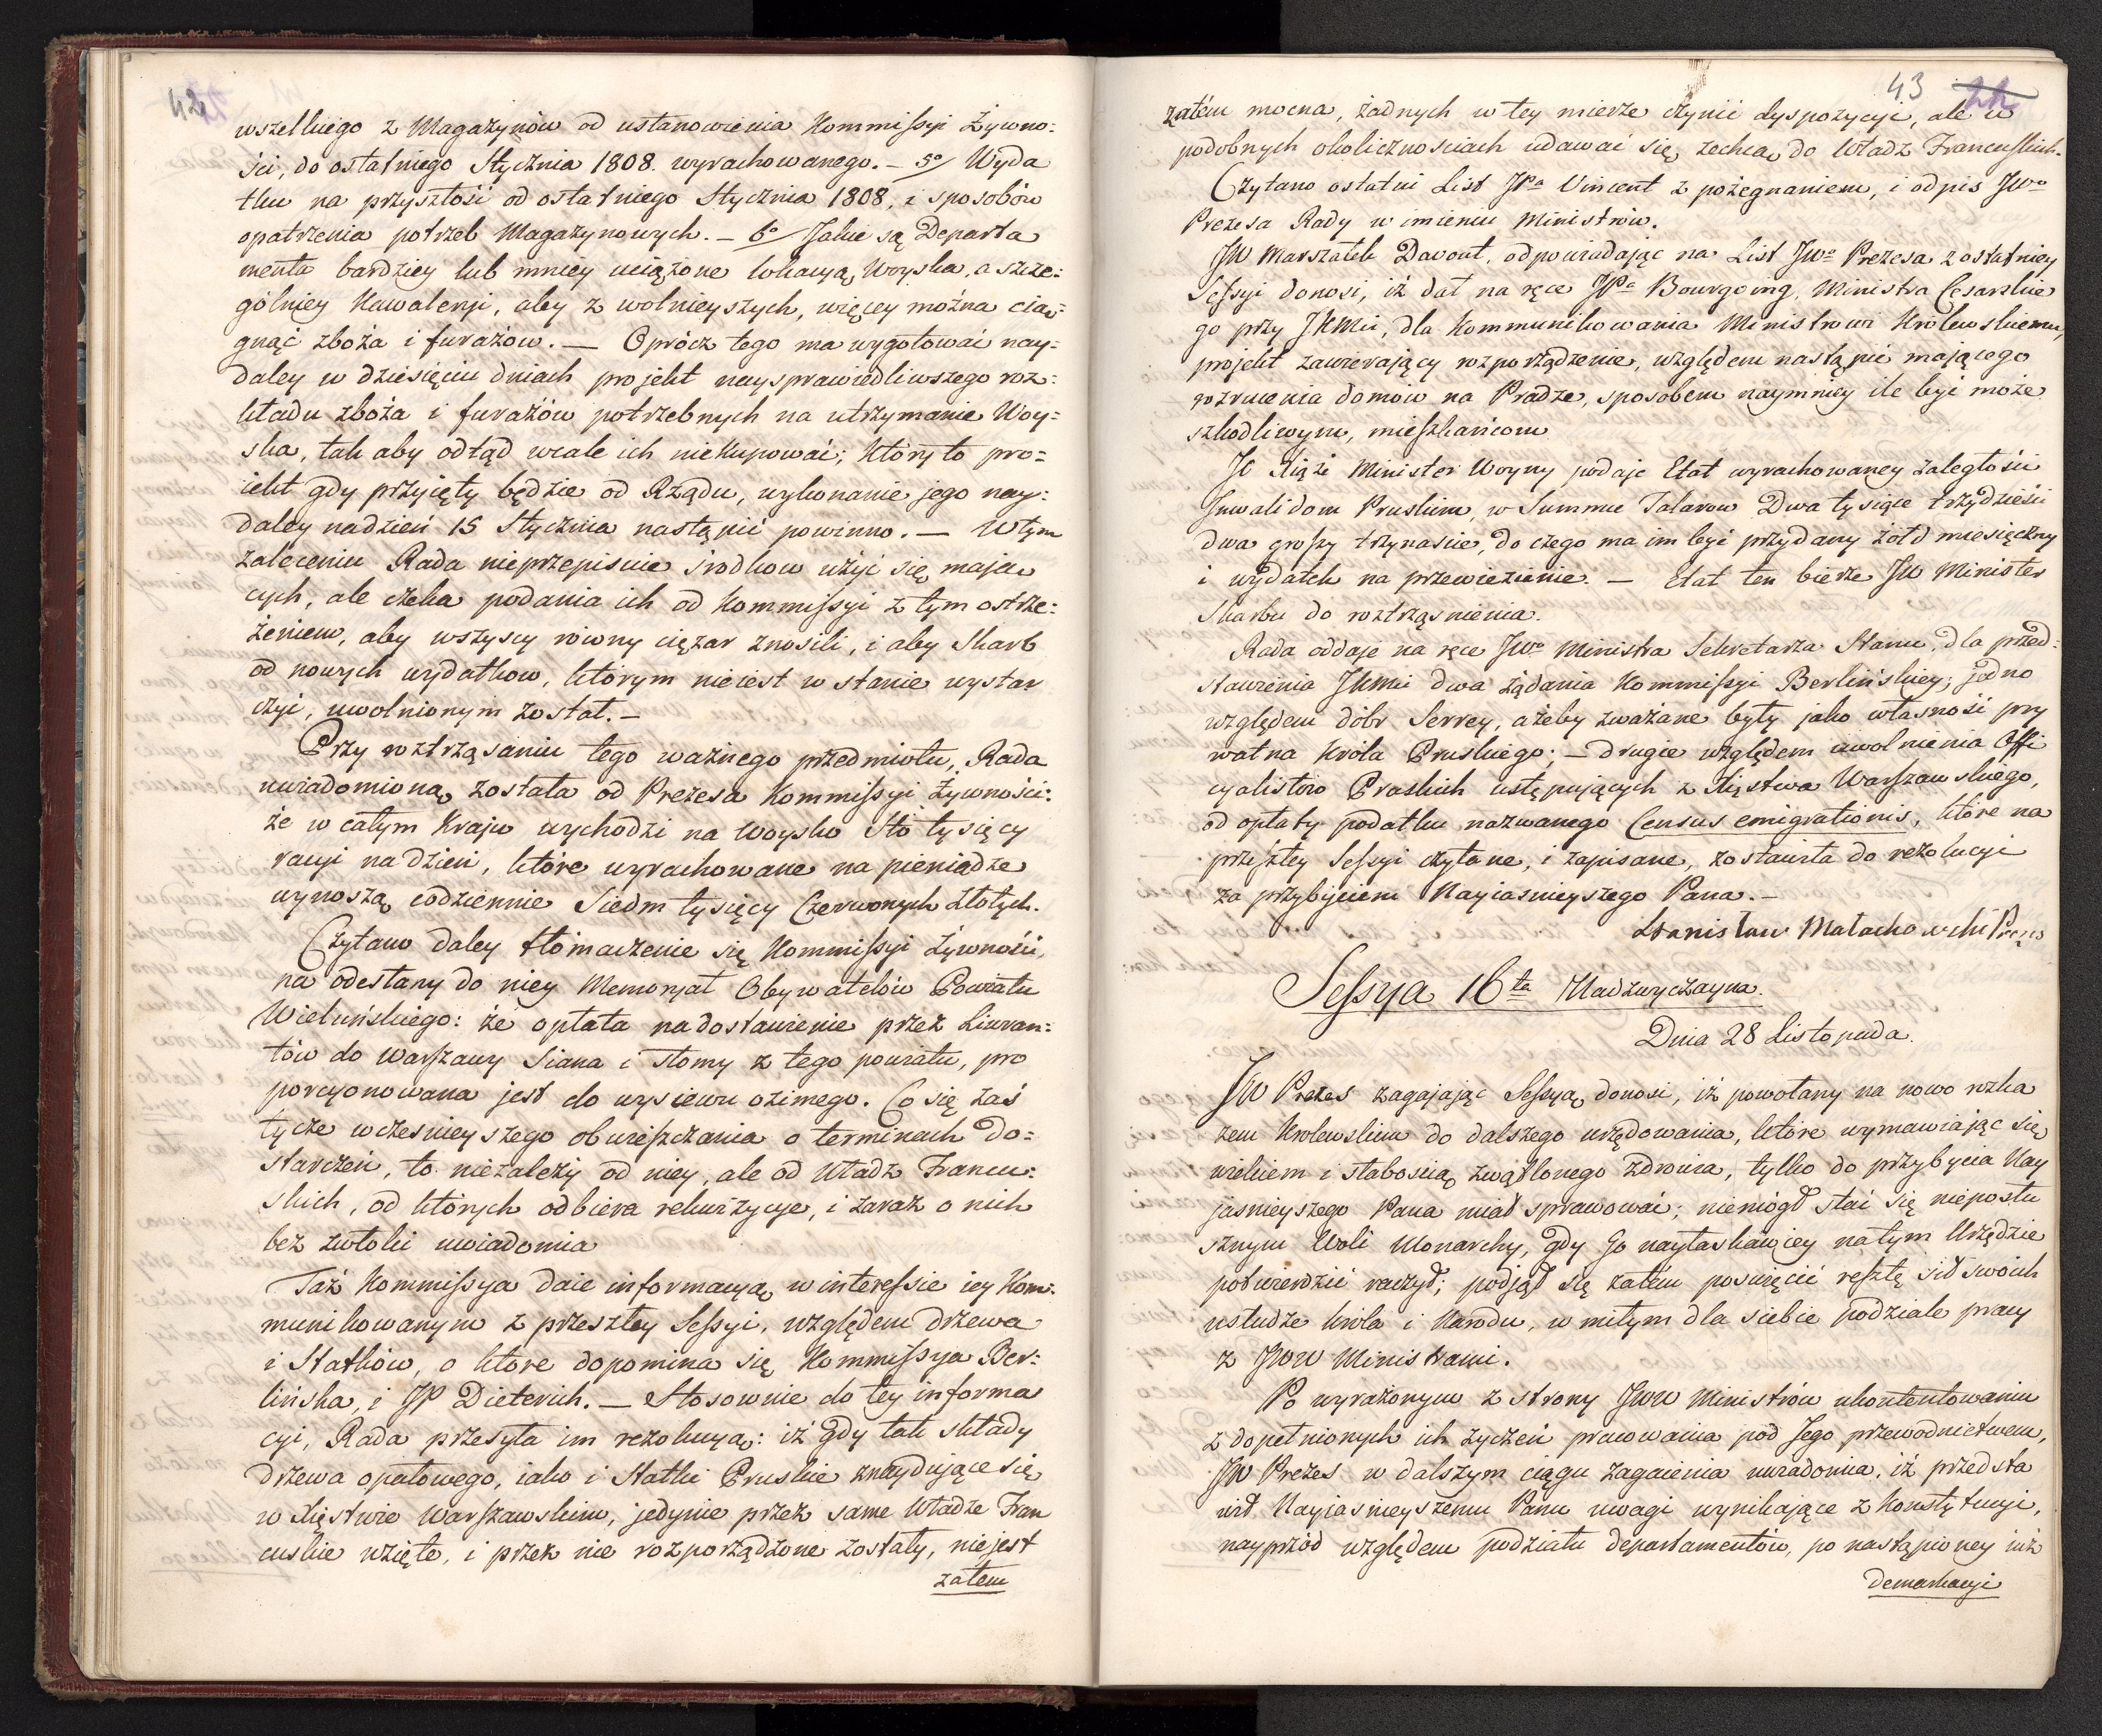 42
wszelkiego z Magazynów od ustanowienia Kommissyi Żywno:
ści, do ostatniego Stycznia 1808. wyrachowanego. – 5o/ Wyda
tku na przyszłość od ostatniego Stycznia 1808, i sposobów
opatrzenia potrzeb Magazynowych. – 6o/ Jakie są Departa
menta bardziey lub mniey uciążone lokacyą Woyska, a szcze:
gólniey Kawaleryi, aby z wolnieyszych, więcey można cią:
gnąć zboża i furażow. — Oprócz tego ma wygotować nay:
daley w dziesięciu dniach projekt naysprawiedliwszego roz:
kładu zboża i furażów potrzebnych na utrzymanie Woy:
ska, tak aby odtąd wcale ich niekupować; który to pro=
iekt gdy przyięty będzie od Rządu, wykonanie jego nay:
daley nadzień 15 Stycznia nastąpić powinno. — W tym
zaleceniu Rada nieprzepisuie środkow użyć się maią
cych, ale czeka podania ich od Kommissyi z tym ostrze:
żeniem, aby wszyscy równy ciężar znosili, i aby Skarb
od nowych wydatkow, którym nieiest w stanie wystar
czyć, uwolnionym został. –
Przy roztrząsaniu tego ważnego przedmiotu, Rada
uwiadomioną została od Prezesa Kommissyi Żywności:
że w całym Kraju wychodzi na Woysko Sto tysięcy
racyi na dzień, które wyrachowane na pieniądze
wynoszą codziennie Siedm tysięcy Czerwonych Złotych.
Czytano daley tłomaczenie się Kommissyi Żywności,
na odesłany do niey Memoryał Obywatelów Powiatu
Wieluńskiego: że opłata na dostawienie przez Liwran:
tów do Warszawy Siana i Słomy z tego powiatu, pro
porcyonowana jest do wysiewu ozimego. Co się zaś
tycze wcześnieyszego obwieszczania o terminach do=
starczeń, to niezależy od niey, ale od Władz Francu:
skich, od których odbiera rekwizycye, i zaraz o nich
bez zwłoki uwiadomia
Taż Kommissya daie informacyą w interessie iey Kom:
munikowanym z przeszłey Sessyi, względem drzewa
i Statków, o które dopomina się Kommissya Ber:
lińska, i JP Dieterich. — Stosownie do tey informa
cyi, Rada przesyła im rezolucyą: iż gdy tak składy
drzewa opałowego, iako i Statki Pruskie znayduiące się
w Xięstwie Warszawskim, jedynie przez same Władze Fran
cuskie wzięte, i przez nie rozporządzone zostały, niejest
zatem
43
zatém mocna, żadnych w tey mierze czynić dyspozycyi, ale w
podobnych okolicznościach udawać się zechcą do Władz Francuskich.
Czytano ostatni List JPa Vincent z pożegnaniem, i odpis JWo
Prezesa Rady w imieniu Ministrów.
JW Marszałek Davout, odpowiadając na List JWo Prezesa z ostatniey
Sessyi donosi, iż dał na ręce JPa Bourgoing, Ministra Cesarskie
go przy JKMci, dla Kommunikowania Ministrowi Królewskiemu,
projekt zawierający rozporządzenie, względem nastąpić mającego
rozrucenia domów na Pradze, sposobem naymniey ile być może
szkodliwym, mieszkańcom
JO Xiąże Minister Woyny podaje Etat wyrachowaney zaległości
Inwalidom Pruskim, w Summie Talarow Dwa tysiące trzydzieści
dwa groszy trzynaście, do czego ma im być przydany żołd miesięczny
i wydatek na przewiezienie. — Etat ten bierze JW Minister
Skarbu do roztrząśnienia.
Rada oddaje na ręce JWo Ministra Sekretarza Stanu, dla przed:
stawienia JKMci dwa żądania Kommissyi Berlińskiey; jedno
względem dóbr Serrey, ażeby zważane były jako własność pry
watna Króla Pruskiego; – drugie względem uwolnienia Offi
cyalistow Pruskich ustępujących z Xięstwa Warszawskiego,
od opłaty podatku nazwanego Census emigrationis, które na
przeszłey Sessyi czytane, i zapisane, zostawiła do rezolucyi
za przybyciem Nayiaśnieyszego Pana. –
Stanisław Małachowski Prezes
Sessya 16ta Nadzwyczayna.
Dnia 28 Listopada.
JW Prezes zagajając Sessyą donosi, iż powołany na nowo rozka
zem Krolewskim do dalszego urzędowania, które wymawiając się
wiekiem i słabością zwątlonego zdrowia, tylko do przybycia Nay
jaśnieyszego Pana miał sprawować; niemógł stać się nieposłu
sznym Woli Monarchy, gdy Go nayłaskawiey na tym Urzędzie
potwierdzić raczył; podjął się zatém poświęcić resztę sił swoich
usłudze Króla i Narodu, w miłym dla siebie podziale pracy
z JWW Ministrami.
Po wyrażonym z strony JWW Ministrów ukontentowaniu
z dopełnionych ich życzeń pracowania pod Jego przewodnictwem,
JW Prezes w dalszym ciągu zagaienia uwiadomia, iż przedsta
wił Nayiaśnieyszemu Panu uwagi wynikające z Konstytucyi,
nayprzód względem podziału departamentów, po nastąpioney iuż
demarkacyi